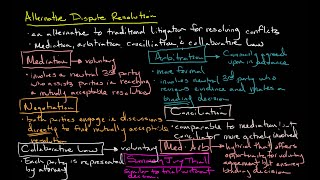 Alternative Dispute Resolution
- an alternative to traditional litigation for resolving conflicts
- Mediation, arbitration, conciliation & collaborative law
Mediation → voluntary
- involves a neutral 3rd party who assists parties in reaching a mutually acceptable resolution
Negotiation
- both parties engage in discussions directly to find mutually acceptable resolution
Collaborative Law → voluntary
- Each party is represented by attorney
Arbitration → Commonly agreed upon in advance
- more formal
- involves neutral 3rd party who reviews evidence and states a binding decision
Conciliation
- comparable to mediation but conciliator more actively involved
Med-Arb → hybrid that offers opportunity for voluntary agreement but ensures binding decision
Summary Jury Trial
similar to trial without decision